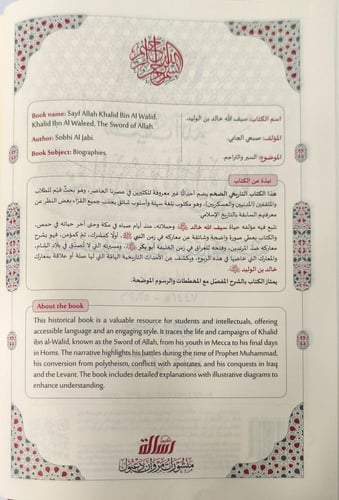 Book name: Sayf Allah Khalid Bin Al Walid.
Khalid Ibn Al Waleed, The Sword of Allah.
Author: Sobhi Al Jabi.
Book Subject: Biographies.
اسم الكتاب: سيف الله خالد بن الوليد.
المؤلف: صبحي الجابي.
الموضوع: السير والتراجم.
نبذة عن الكتاب
هذا الكتاب التاريخي الضخم يضم أحداثًا غير معروفة للكثيرين في عصرنا الحاضر، وهو بحثٌ قيّم للطلاب
والمثقفين (المدنيين والعسكريين)، وهو مكتوب بلغة سهلة وأسلوب شائق يجذب جميع القراء بغض النظر عن
معرفتهم السابقة بالتاريخ الإسلامي.
تتبع فيه مؤلفه حياة سيف الله خالد وحملاته، منذ أيام صباه في مكة وحتى آخر حياته في حمص،
الكتاب يعطي صورة واضحة وشائقة عن معاركه في زمن النبي ﷺ، أولًا كمشرك، ثم كمؤمن، فهو يشرح
معاركه ضد المرتدين، وفتحه للعراق في زمن الخليفة أبو بكر، ومسيرته التي لا تُصدق في بلاد الشام،
والمعارك التي خاضها في هذه الربوع، ويكشف عن الأحداث التاريخية الباقية التي لها صلة أو علاقة بمعارك
خالد بن الوليد
يمتاز الكتاب بالشرح المفصل مع المخططات والرسوم الموضحة.
About the book
This historical book is a valuable resource for students and intellectuals, offering
accessible language and an engaging style. It traces the life and campaigns of Khalid
ibn al-Walid, known as the Sword of Allah, from his youth in Mecca to his final days
in Homs. The narrative highlights his battles during the time of Prophet Muhammad,
his conversion from polytheism, conflicts with apostates, and his conquests in Iraq
and the Levant. The book includes detailed explanations with illustrative diagrams to
enhance understanding.
رسالة
منشورات مروان دعبول